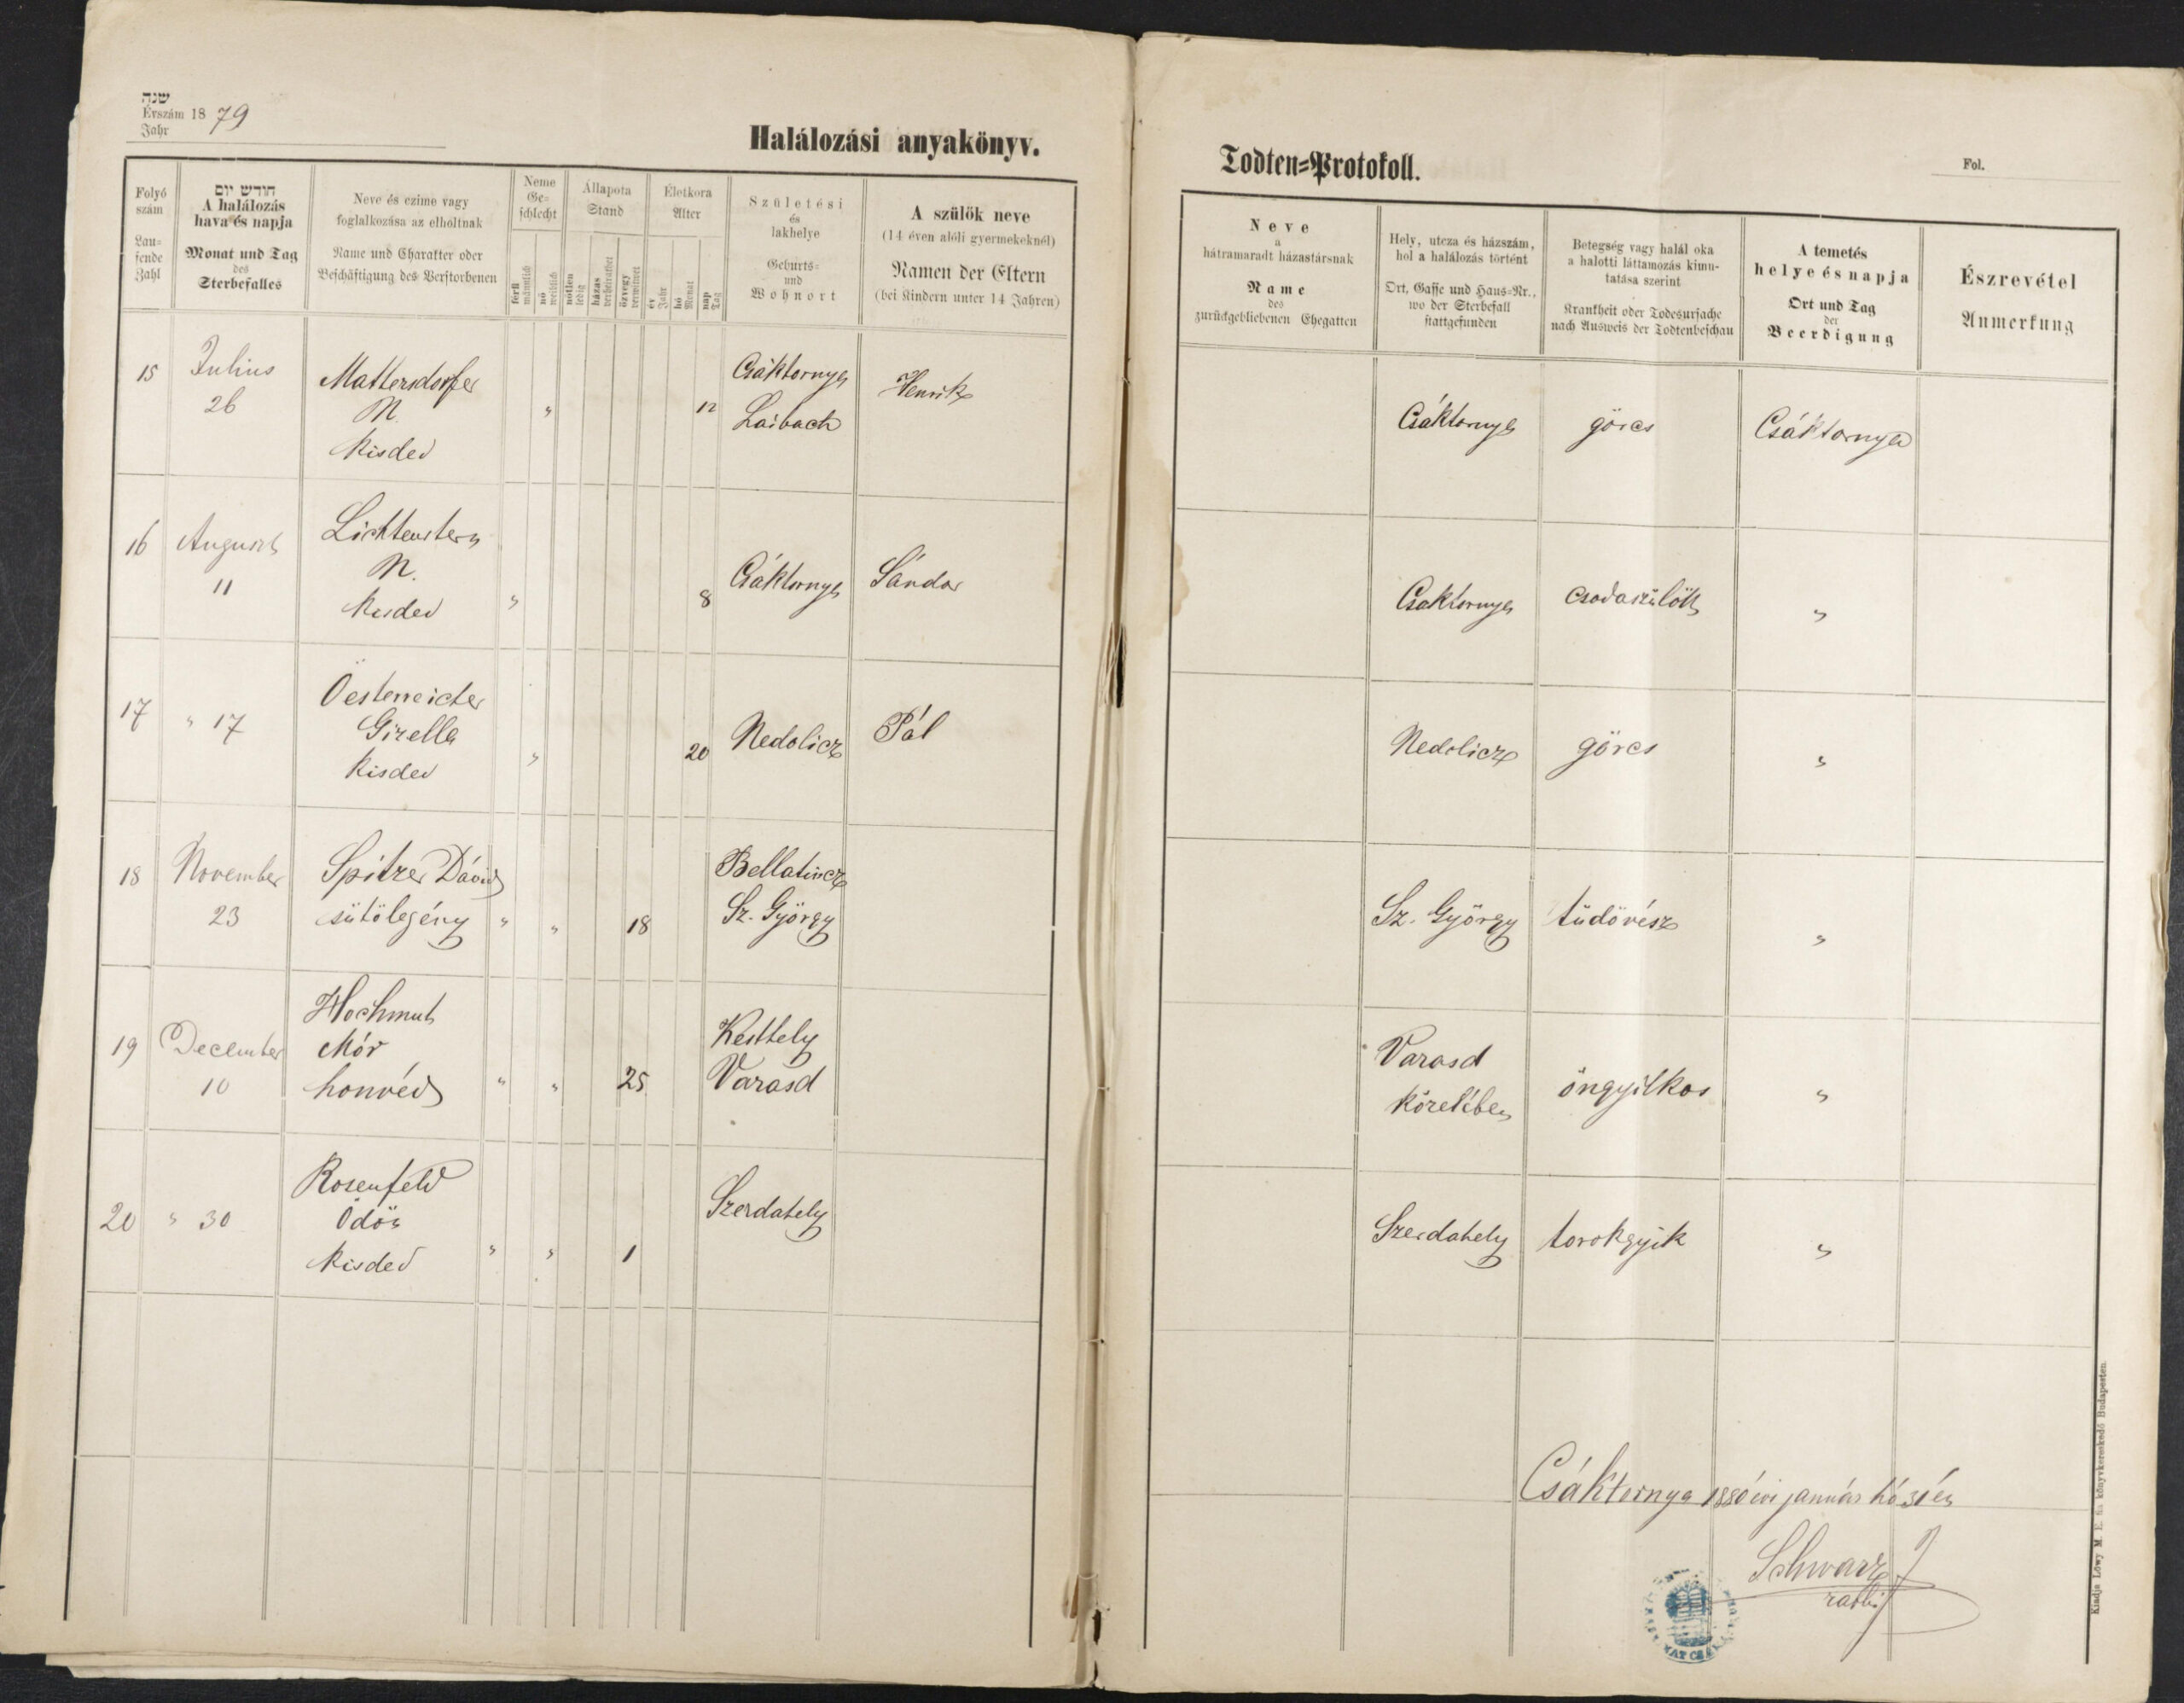 שנה
Évszám 1879
Jahr
Halálozási anyakönyv.
Folyó szám
Lau-
fende
Zahl
חודש יום
A halálozás
hava és napja
Monat und Tag
des
Sterbefalles
Neve és czime vagy
foglalkozása az elholtnak
Name und Charakter oder
Beschäftigung des Verstorbenen
Neme
Ge-
schlecht
férfi
männlich
nő
weiblich
Állapota
Stand
nőtlen
ledig
házas
verheirathet
özvegy
verwitwet
Életkora
Alter
év
Jahr
hó
Monat
nap
Tag
Születési
és
lakhelye
Geburts-
und
Wohnort
A szülők neve
(14 éven alóli gyermekeknél)
Namen der Eltern
(bei Kindern unter 14 Jahren)
15
Julius
26
Mattersdorfer
N.
kisded
"
12
Csáktornya
Laibach
Henrik
16
August
11
Lichtenstern
N.
kisded
"
8
Csáktornya
Sándor
17
" 17
Oesterreicher
Gizella
kisded
"
20
Nedelicz
Pál
18
November
23
Spitzer Dávid
sütölegény
"
"
18
Bellatincz
Sz. György
19
December
10
Hochmuth
Mór
honvéd
"
"
25
Keszthely
Varasd
20
" 30
Rosenfeld
Ödön
kisded
"
"
1
Szerdahely
Todten=Protokoll.
Fol.
Neve
a
hátramaradt házastársnak
Name
des
zurückgebliebenen Ehegatten
Hely, utcza és házszám,
hol a halálozás történt
Ort, Gasse und Haus=Nr.,
wo der Sterbefall
stattgefunden
Betegség vagy halál oka
a halotti láttamozás kimu-
tatása szerint
Krankheit oder Todesursache
nach Ausweis der Todtenbeschau
A temetés
helye és napja
Ort und Tag
der
Beerdigung
Észrevétel
Anmerkung
Csáktornya
görcs
Csáktornya
Csaktornya
csodaszülött
"
Nedelicz
görcs
"
Sz. György
tüdövész
"
Varasd
közelében
öngyilkos
"
Szerdahely
torokgyik
"
Csáktornya 1880 évi január hó 31én
Schwarz J
rabbi
Kiadja Löwy M. E. fia könyvkereskedő Budapesten.